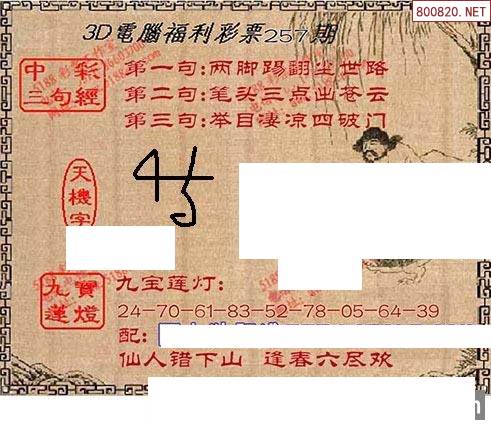 800820.NET
3D電腦福利彩票257期
中彩
三句經
第一句:两脚踢翻尘世路
第二句:笔头三点出苍云
第三句:举目凄凉四破门
天機字
九寶
蓮燈
九宝莲灯:
24-70-61-83-52-78-05-64-39
配:
仙人错下山 逢春六尽欢